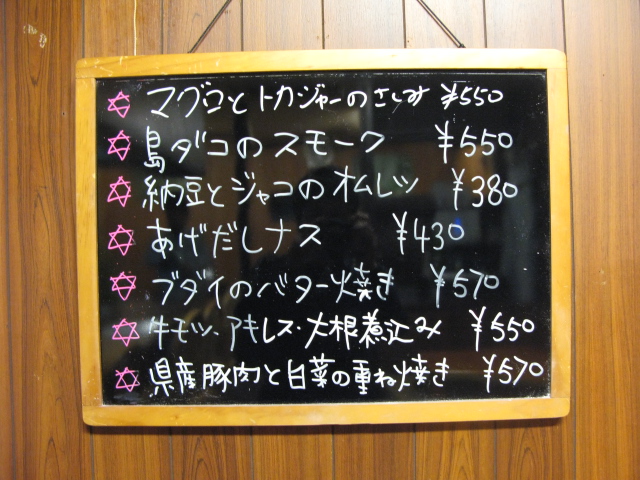 マグロとトカジャーのさしみ ¥550
島ダコのスモーク ¥550
納豆とジャコのオムレツ ¥380
あげだしナス ¥430
ブダイのバター焼き ¥570
牛モツ、アキレス・大根煮込み ¥550
県産豚肉と白菜の重ね焼き ¥570